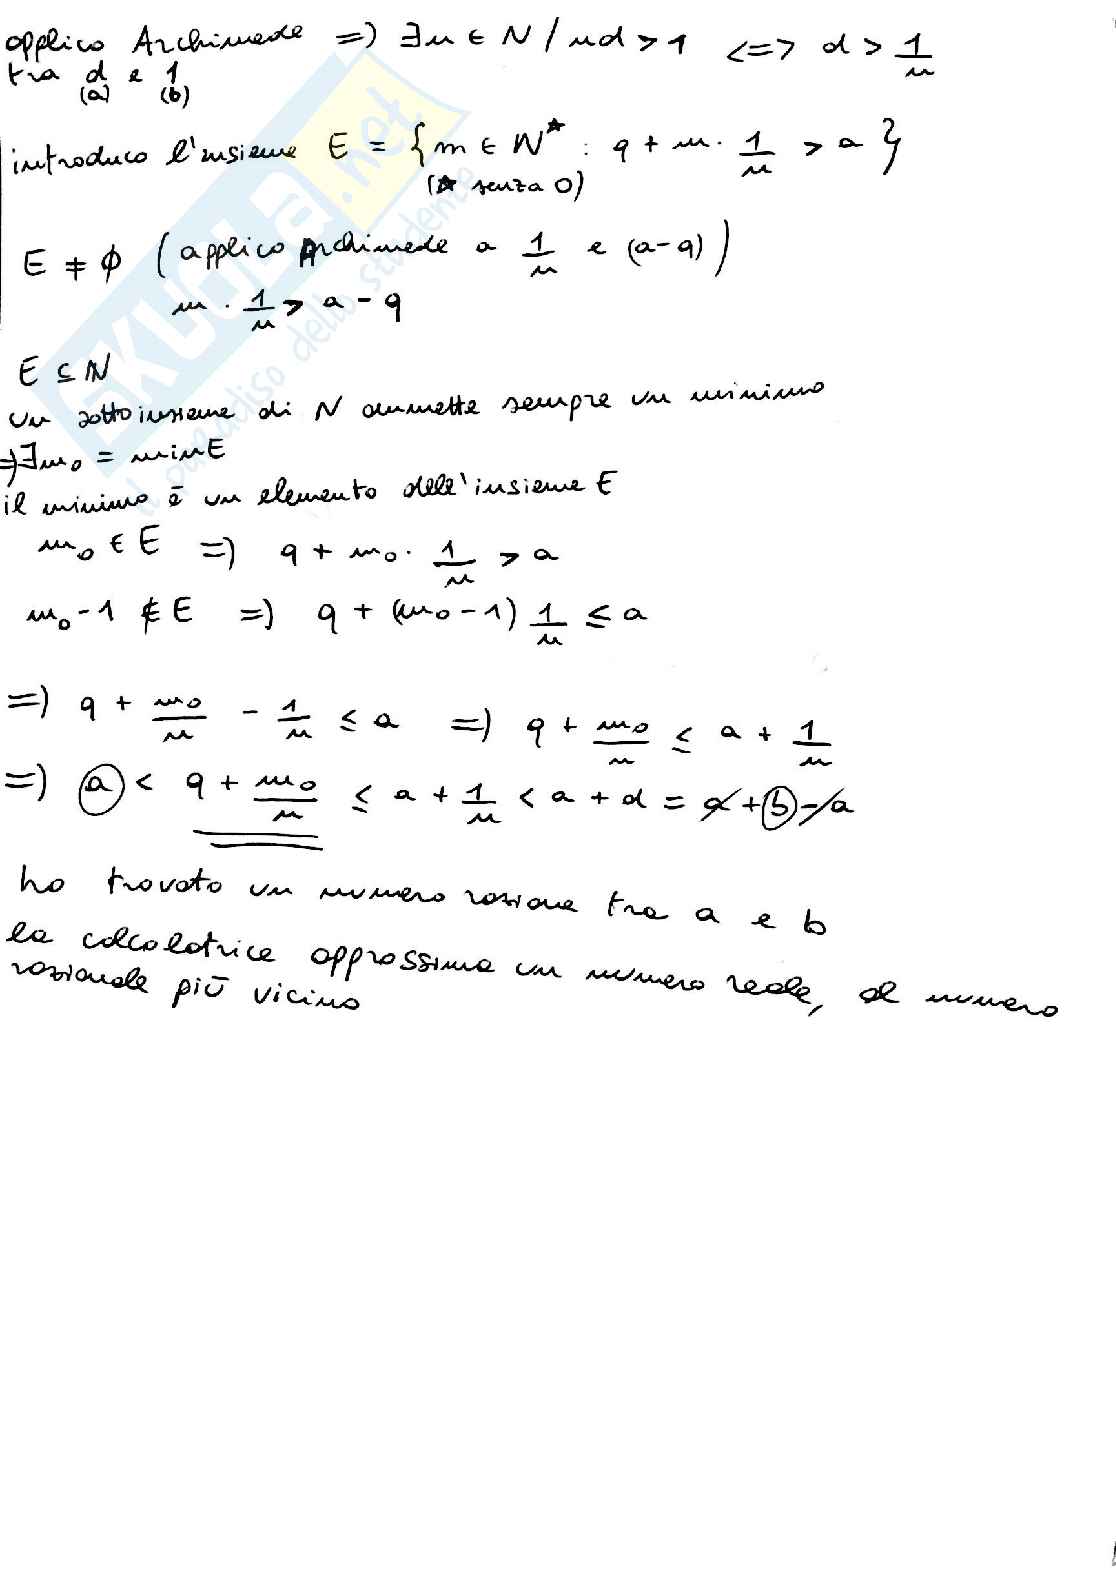 applico Archimede => ∃n ∈ N / nd > 1 <=> d > 1/n
tra d e 1
(a) (b)
introduco l'insieme E = {m ∈ N* : q + m · 1/n > a}
(* senza 0)
E ≠ ∅ (applico Archimede a 1/n e (a-q))
m · 1/n > a - q
E ⊆ N
un sottoinsieme di N ammette sempre un minimo
=> ∃m₀ = min E
il minimo è un elemento dell'insieme E
m₀ ∈ E => q + m₀ · 1/n > a
m₀ - 1 ∉ E => q + (m₀ - 1) 1/n ≤ a
=> q + m₀/n - 1/n ≤ a => q + m₀/n ≤ a + 1/n
=> a < q + m₀/n ≤ a + 1/n < a + d = a + b - a
ho trovato un numero razionale tra a e b
la calcolatrice approssima un numero reale, al numero
razionale più vicino
SKUOLA.net
il paradiso dello studente